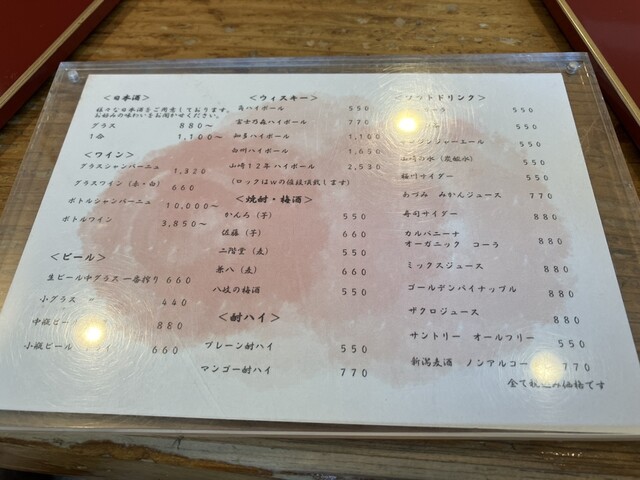 ＜日本酒＞
様々な日本酒をご用意しております。
お好みの味わいをお聞かせください。
グラス 880～
1合 1,100～
＜ワイン＞
グラスシャンパーニュ 1,320
グラスワイン（赤・白） 660
ボトルシャンパーニュ 10,000～
ボトルワイン 3,850～
＜ビール＞
生ビール中グラス 一番搾り 660
小グラス 〃 440
中瓶ビール 880
小瓶ビール 660
＜ウィスキー＞
角ハイボール 550
富士乃森ハイボール 770
知多ハイボール 1,100
白州ハイボール 1,650
山崎12年ハイボール 2,530
（ロックはwの値段頂戴します）
＜焼酎・梅酒＞
かんろ（芋） 550
佐藤（芋） 660
二階堂（麦） 550
兼八（麦） 660
八岐の梅酒 550
＜酎ハイ＞
プレーン酎ハイ 550
マンゴー酎ハイ 770
＜ソフトドリンク＞
550
550
ジンジャーエール 550
山崎の水（炭酸水） 550
桜川サイダー 550
あづみ みかんジュース 770
寿司サイダー 880
カルバニーナ
オーガニック コーラ 880
ミックスジュース 880
ゴールデンパイナップル 880
ザクロジュース 880
サントリー オールフリー 550
新潟麦酒 ノンアルコー 770
全て税込み価格です